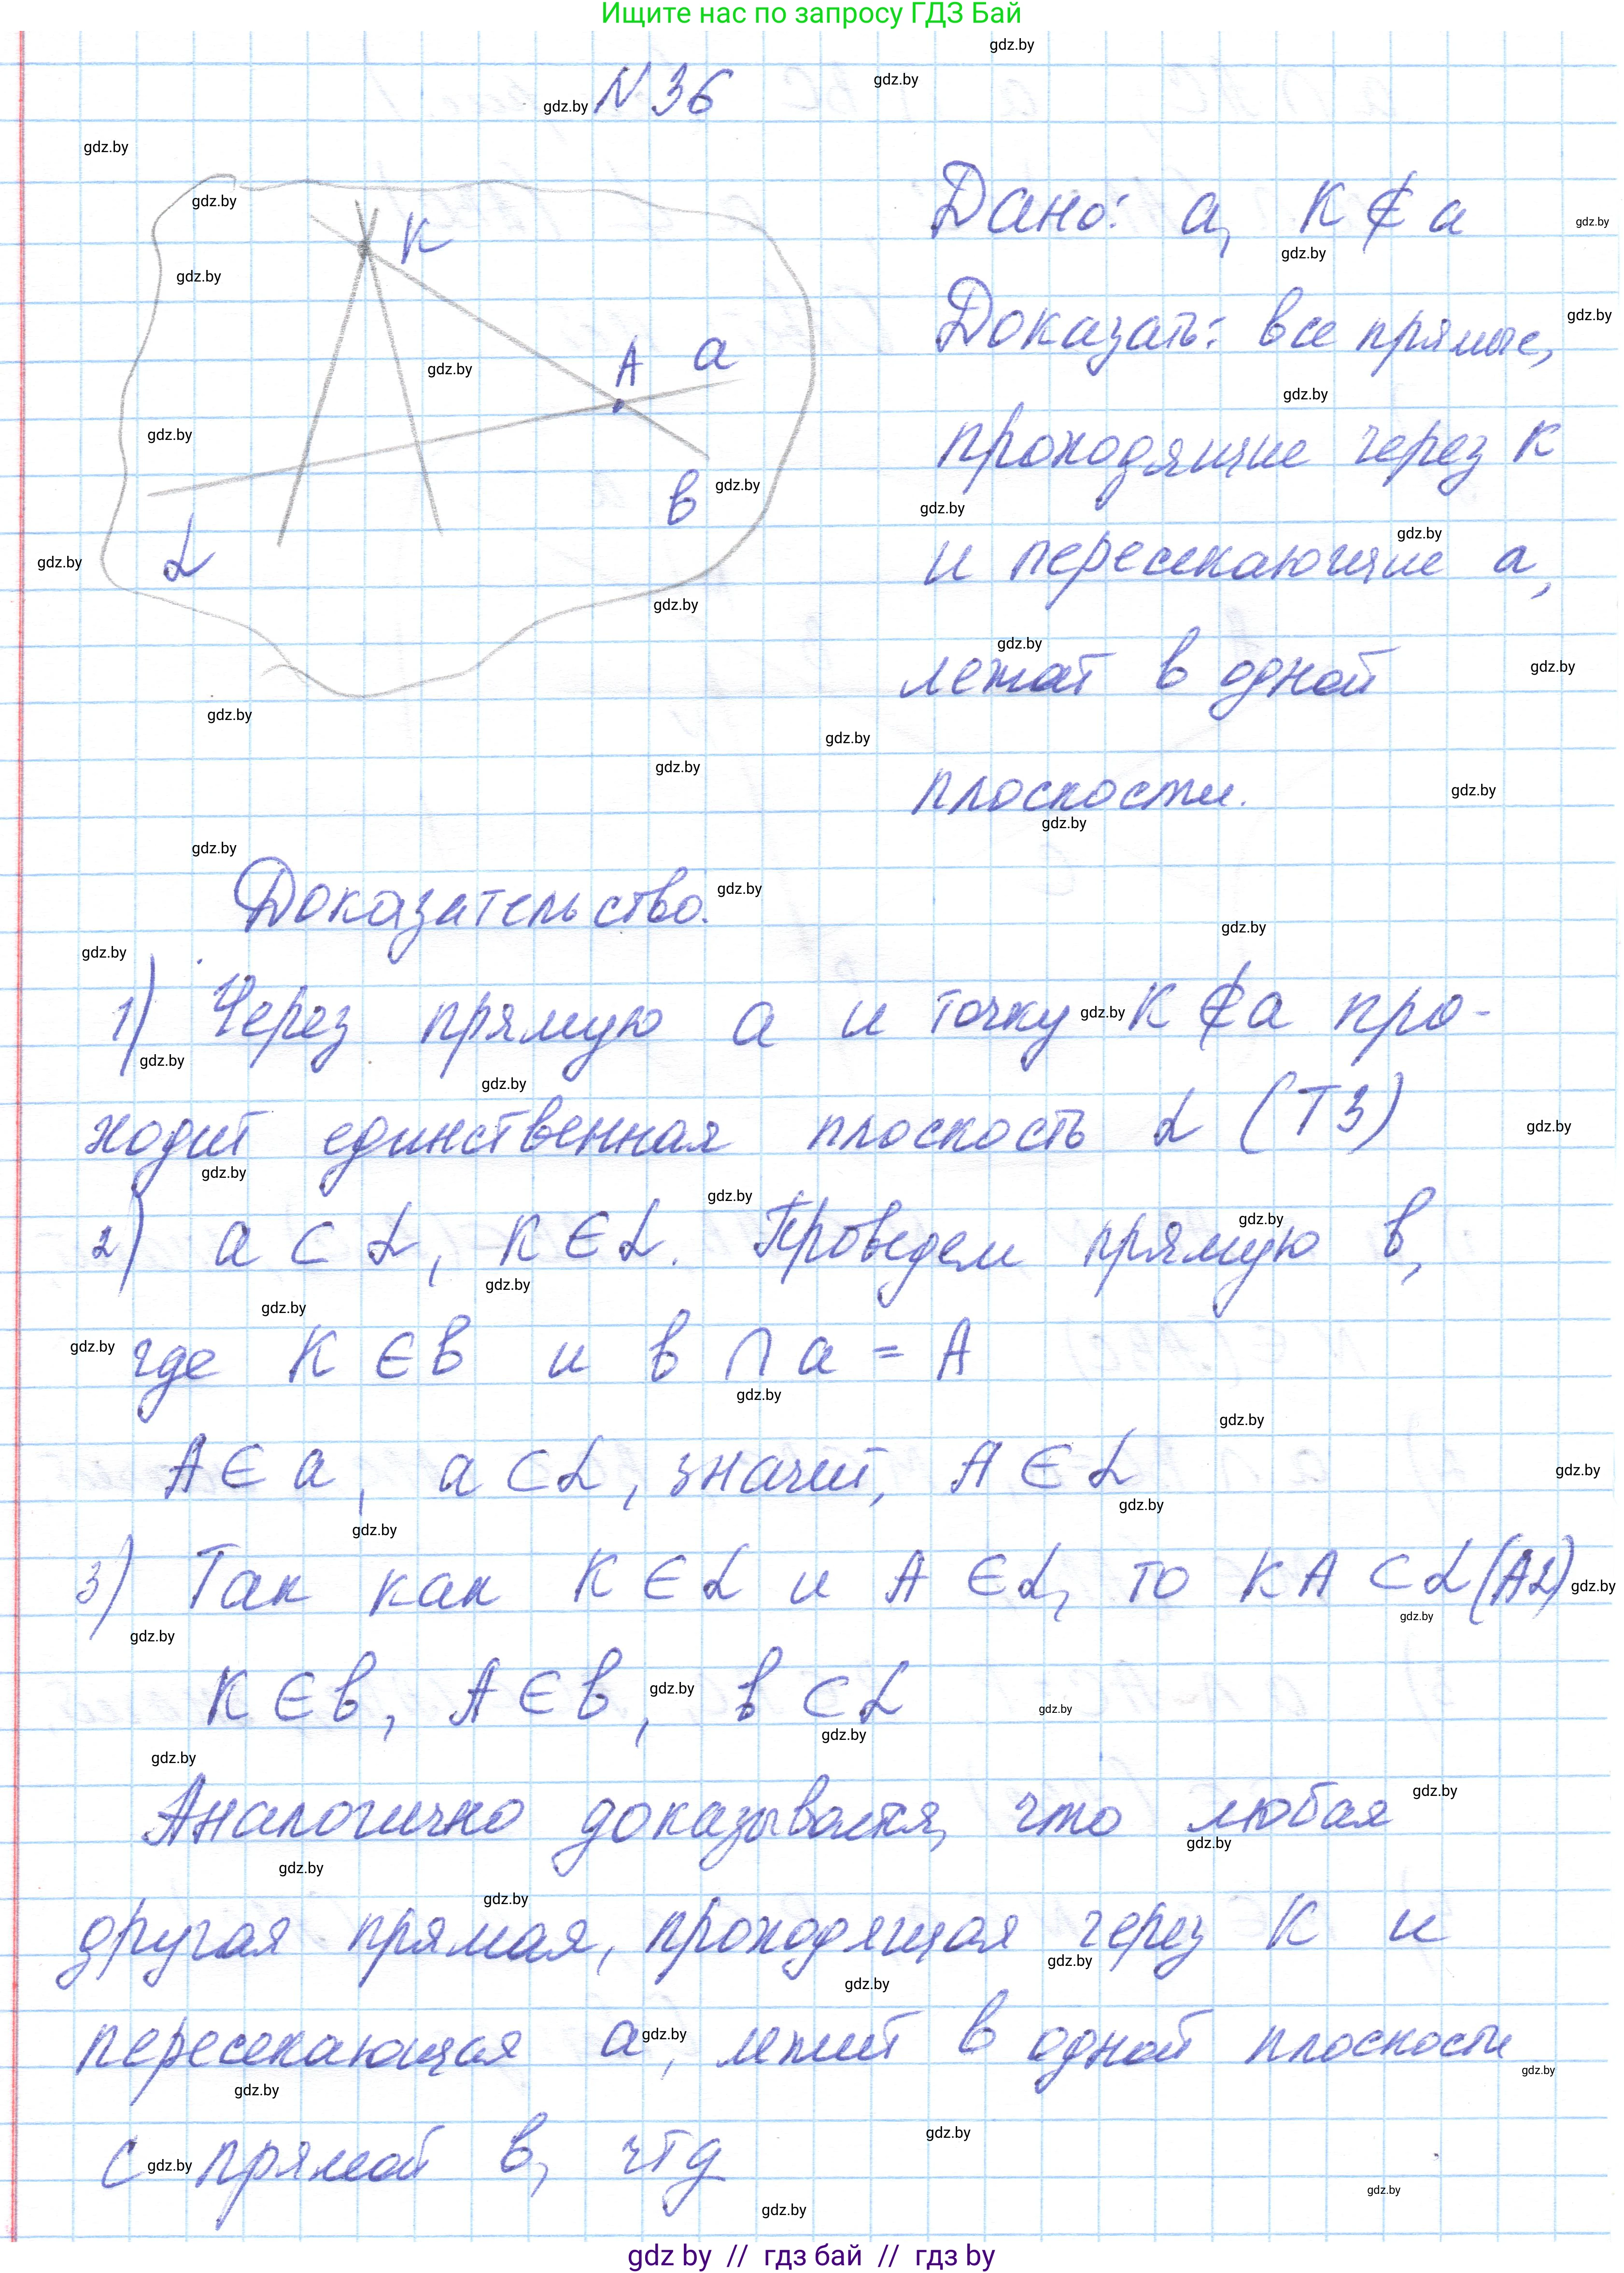 Ищите нас по запросу ГДЗ Бай
N 36
К
А
а
в
α
Дано: а, К ∉ а
Доказать: все прямые,
проходящие через К
и пересекающие а,
лежат в одной
плоскости.
Доказательство.
1) Через прямую а и точку К ∉ а про-
ходит единственная плоскость α (Т3)
2) а ⊂ α, К ∈ α. Проведем прямую в,
где К ∈ в и в ∩ а = А
А ∈ а, а ⊂ α, значит, А ∈ α
3) Так как К ∈ α и А ∈ α, то КА ⊂ α (А2)
К ∈ в, А ∈ в, в ⊂ α
Аналогично доказывается, что любая
другая прямая, проходящая через К и
пересекающая а, лежит в одной плоскости
с прямой в, чтд
gdz.by
gdz by // гдз бай // гдз by